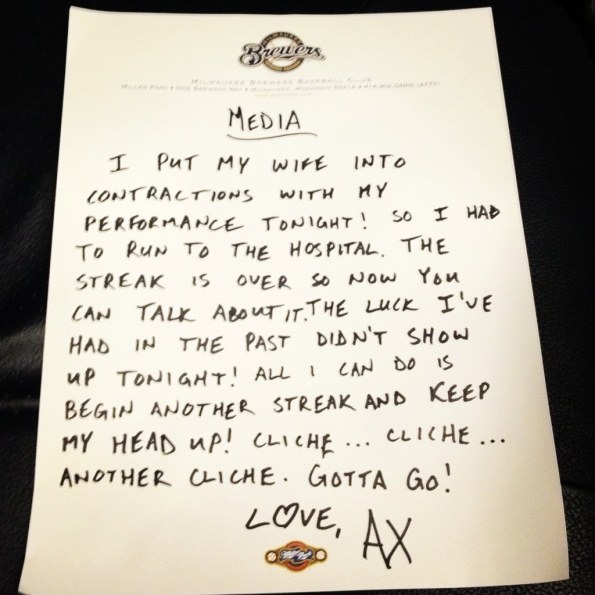 MILWAUKEE
Brewers
MILWAUKEE BREWERS BASEBALL CLUB
MEDIA
I PUT MY WIFE INTO
CONTRACTIONS WITH MY
PERFORMANCE TONIGHT! SO I HAD
TO RUN TO THE HOSPITAL. THE
STREAK IS OVER SO NOW YOU
CAN TALK ABOUT IT. THE LUCK I'VE
HAD IN THE PAST DIDN'T SHOW
UP TONIGHT! ALL I CAN DO IS
BEGIN ANOTHER STREAK AND KEEP
MY HEAD UP! CLICHE ... CLICHE ...
ANOTHER CLICHE. GOTTA GO!
LOVE, AX